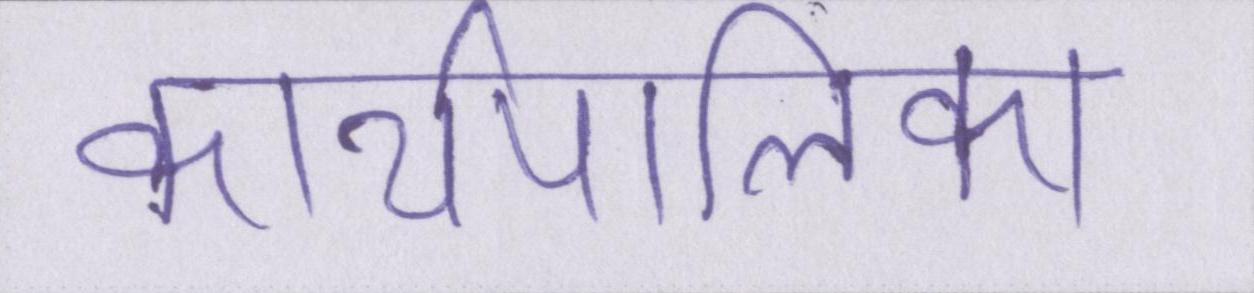 कार्यपालिका